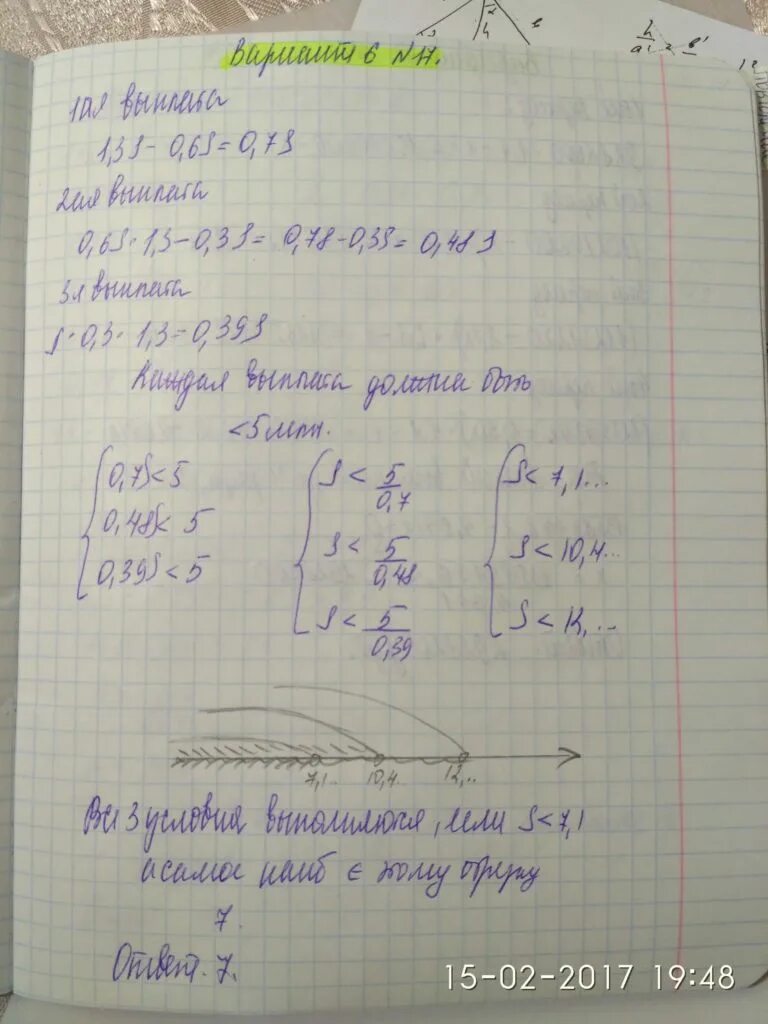 Вариант 6 N17.
1ая выплата
1,3S - 0,6S = 0,7S
2ая выплата
0,6S · 1,3 - 0,3S = 0,78 - 0,3S = 0,48S
3я выплата
S · 0,3 · 1,3 = 0,39S
Каждая выплата должна быть
< 5 млн.
0,7S < 5 S < 5/0,7 S < 7,1...
0,48S < 5 S < 5/0,48 S < 10,4...
0,39S < 5 S < 5/0,39 S < 12,...
7,1.. 10,4.. 12,..
Все 3 условия выполняются, если S < 7,1
а самое наиб ∈ этому отрезку
7.
Ответ. 7.
15-02-2017 19:48